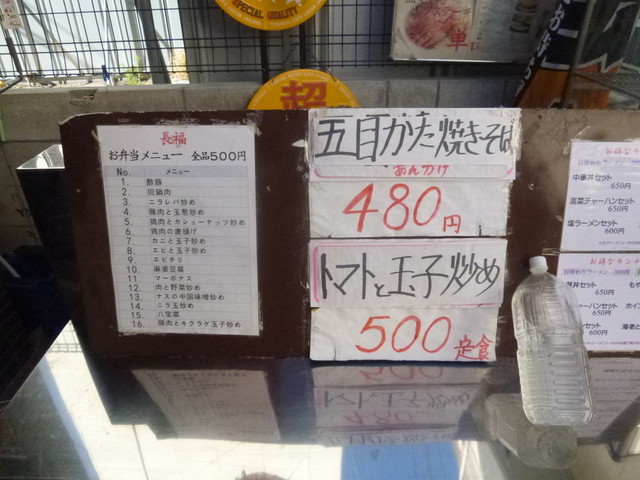 SPECIAL QUALITY
単
超
長福
お弁当メニュー 全品500円
No. メニュー
1. 酢豚
2. 回鍋肉
3. ニラレバ炒め
4. 豚肉と玉葱炒め
5. 鶏肉とカシューナッツ炒め
6. 鶏肉の唐揚げ
7. カニと玉子炒め
8. エビと玉子炒め
9. エビチリ
10. 麻婆豆腐
11. マーボナス
12. 肉と野菜炒め
13. ナスの中国味噌炒め
14. ニラ玉炒め
15. 八宝菜
16. 豚肉とキクラゲ玉子炒め
五目かた焼きそば
あんかけ
480円
トマトと玉子炒め
500定食
中華丼セット
650円
高菜チャーハンセット
650円
塩ラーメンセット
600円
650円
650円
600円